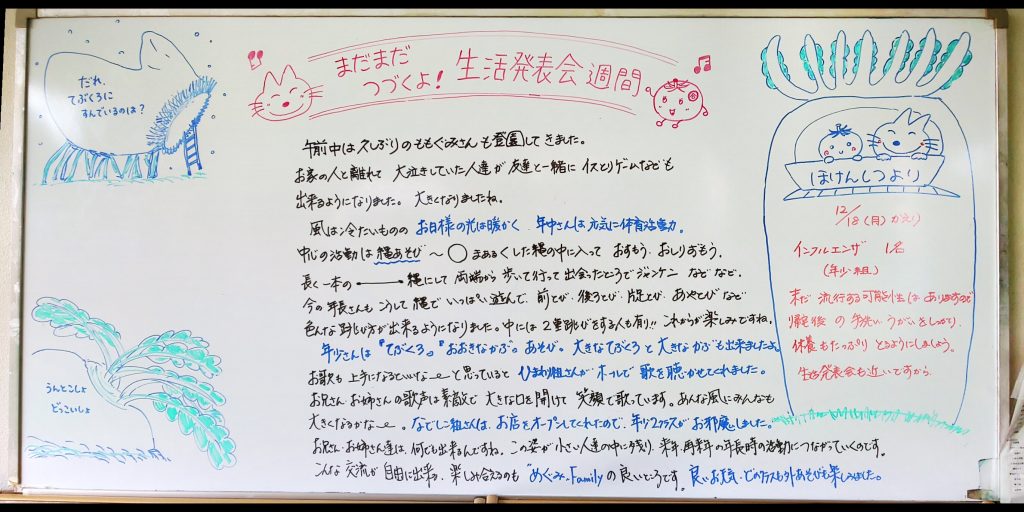 だれ、
てぶくろに
すんでいるのは？
まだまだ
つづくよ！ 生活発表会週間
午前中は久しぶりのももぐみさんも登園してきました。
お家の人と離れて 大泣きしていた人達が 友達と一緒に イスとりゲームなども
出来るようになりました。 大きくなりましたね。
風は冷たいものの お日様の光は暖かく 年中さんは 元気に体育活動。
中心の活動は 縄あそび 〜 ○ まあるくした縄の中に入って おすもう、おしりずもう。
長く一本の 縄にして 両端から 歩いて行って 出会ったところで ジャンケン などなど。
今の年長さんも こうして 縄で いっぱい遊んで、前とび、後ろとび、あやとび など
色んな跳び方が出来るようになりました。中には 2重跳びをする人も有り!! これからが楽しみですね。
年少さんは『てぶくろ』『おおきなかぶ』あそび。大きなてぶくろと 大きな かぶも出来ましたよ。
お歌も 上手になるといいなーと思っていると ひまわり組さんが ホールで 歌を聴かせてくれました。
お兄さん お姉さんの歌声は素敵で 大きな口を開けて 笑顔で歌っています。あんな風にみんなも
大きくなるかなー。 なでしこ組さんは、お店をオープンしてくれたので、年少2クラスが お邪魔しました。
お兄さん・お姉さん達は、何でも出来るんですね。この姿が 小さい人達の中に残り、来年、再来年の年長時の活動につながっていくのです。
こんな 交流が 自由に出来、楽しみ合えるのも "めぐみ.Family の良いところです。良いお天気、どのクラスも外あそびも楽しみました。
うんとこしょ
どっこいしょ
ほけんしつより
12/18(月)かえり
インフルエンザ 1名
(年少組)
まだ 流行する可能性は ありますので
帰宅後 の 手洗い うがいをしっかり、
休養もたっぷり とるようにしましょう。
生活発表会も近いですから。